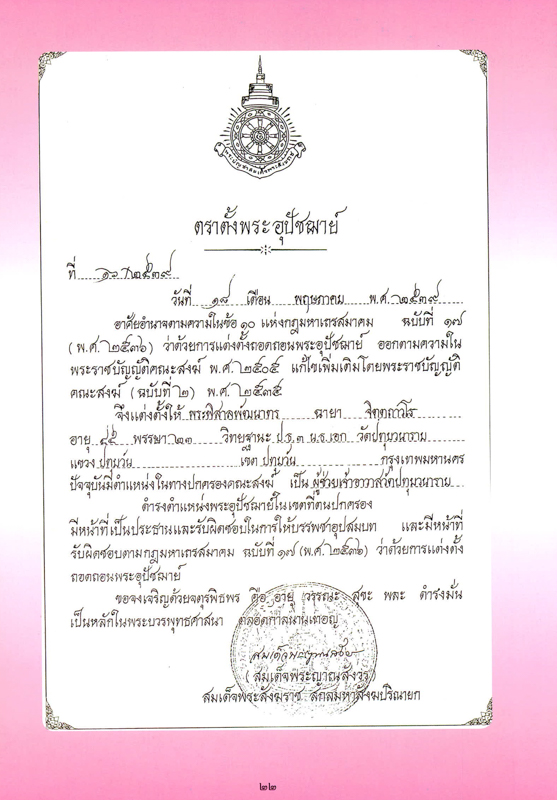 ตราตั้งพระอุปัชฌาย์
ที่ ๒๕๓๙
วันที่ ๑๗ เดือน พฤษภาคม พ.ศ. ๒๕๓๙
อาศัยอำนาจตามความในข้อ ๑๐ แห่งกฎมหาเถรสมาคม ฉบับที่ ๑๗
(พ.ศ. ๒๕๓๖) ว่าด้วยการแต่งตั้งถอดถอนพระอุปัชฌาย์ ออกตามความใน
พระราชบัญญัติคณะสงฆ์ พ.ศ. ๒๕๐๕ แก้ไขเพิ่มเติมโดยพระราชบัญญัติ
คณะสงฆ์ (ฉบับที่ ๒) พ.ศ. ๒๕๓๕
จึงแต่งตั้งให้ พระพิศาลพัฒนาทร ฉายา จิตฺตถาวโร
อายุ พรรษา ๒๑ วิทยฐานะ ป.ธ.๓ น.ธ.เอก วัดปทุมวนาราม
แขวง ปทุมวัน เขต ปทุมวัน กรุงเทพมหานคร
ปัจจุบันมีตำแหน่งในทางปกครองคณะสงฆ์ เป็น ผู้ช่วยเจ้าอาวาสวัดปทุมวนาราม
ดำรงตำแหน่งพระอุปัชฌาย์ในเขตที่ตนปกครอง
มีหน้าที่เป็นประธานและรับผิดชอบในการให้บรรพชาอุปสมบท และมีหน้าที่
รับผิดชอบตามกฎมหาเถรสมาคม ฉบับที่ ๑๗ (พ.ศ. ๒๕๓๖) ว่าด้วยการแต่งตั้ง
ถอดถอนพระอุปัชฌาย์
ขอจงเจริญด้วยจตุรพิธพร คือ อายุ วรรณะ สุขะ พละ ดำรงมั่น
เป็นหลักในพระบวรพุทธศาสนา ตลอดกาลนานเทอญ
(สมเด็จพระญาณสังวร)
สมเด็จพระสังฆราช สกลมหาสังฆปริณายก
๒๒